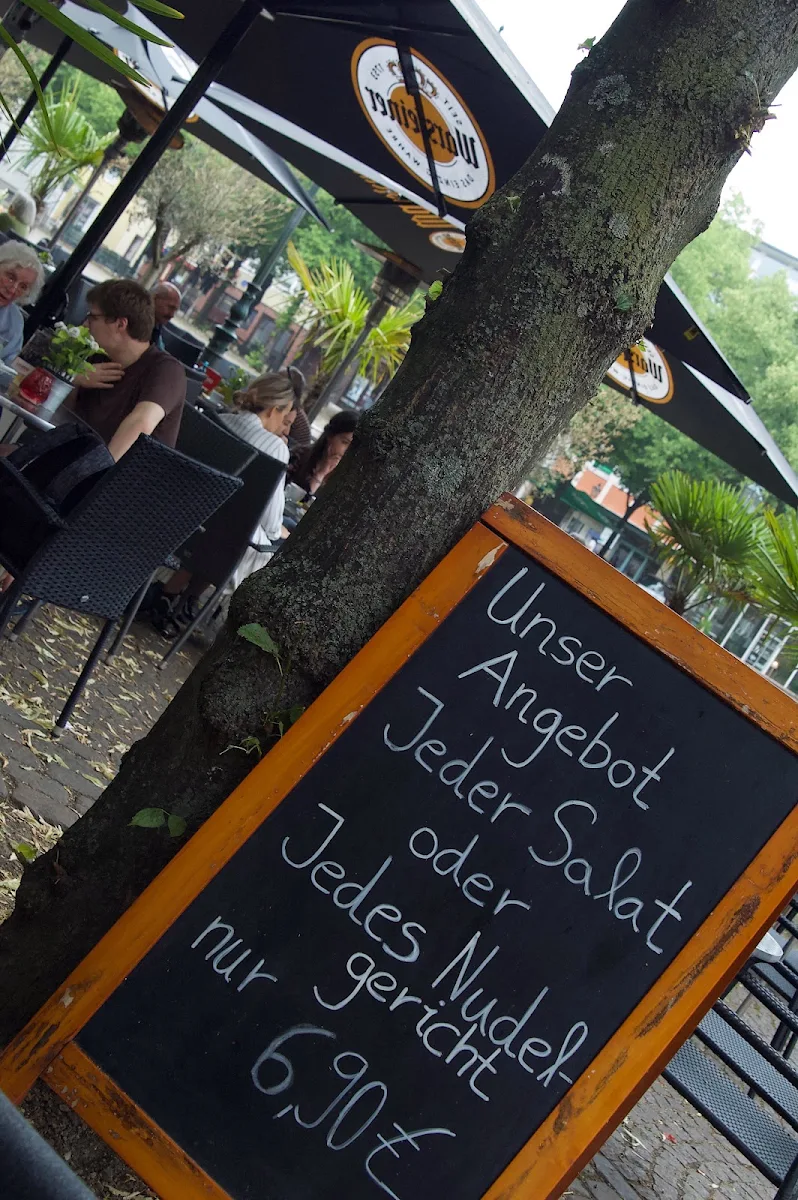 Warsteiner
DAS EINZIG WAHRE
Unser
Angebot
Jeder Salat
oder
Jedes Nudel-
gericht
nur
6,90€